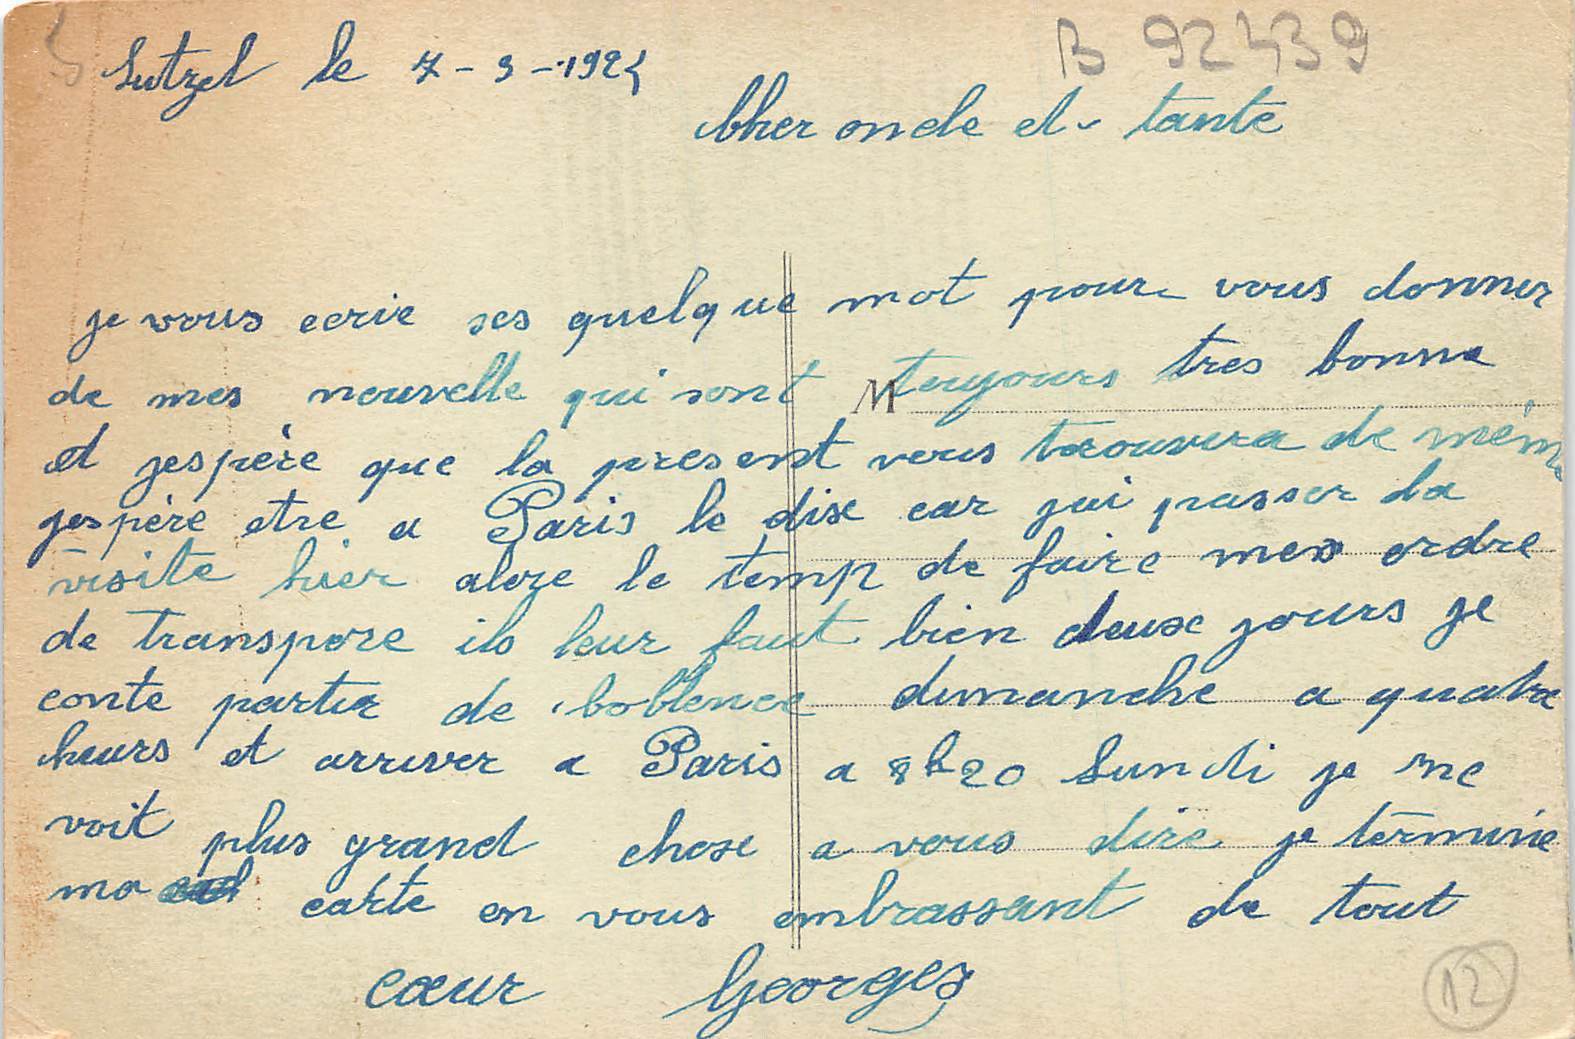 B 92439
Lutzel le 7-3-192
Cher oncle et tante
je vous ecrie ses quelque mot pour vous donner
de mes nouvelle qui sont toujours tres bonne
M
et jespère que la present vous trouvera de même
jespère etre a Paris le dixe car jai passer la
visite hier alore le temp de faire mes ordre
de transpore ils leur faut bien deuxe jours je
conte partir de Coblence dimanche a quatre
heurs et arriver a Paris a 8h20 Lundi je ne
voit plus grand chose a vous dire je termine
ma carte en vous embrassant de tout
cœur Georges
12